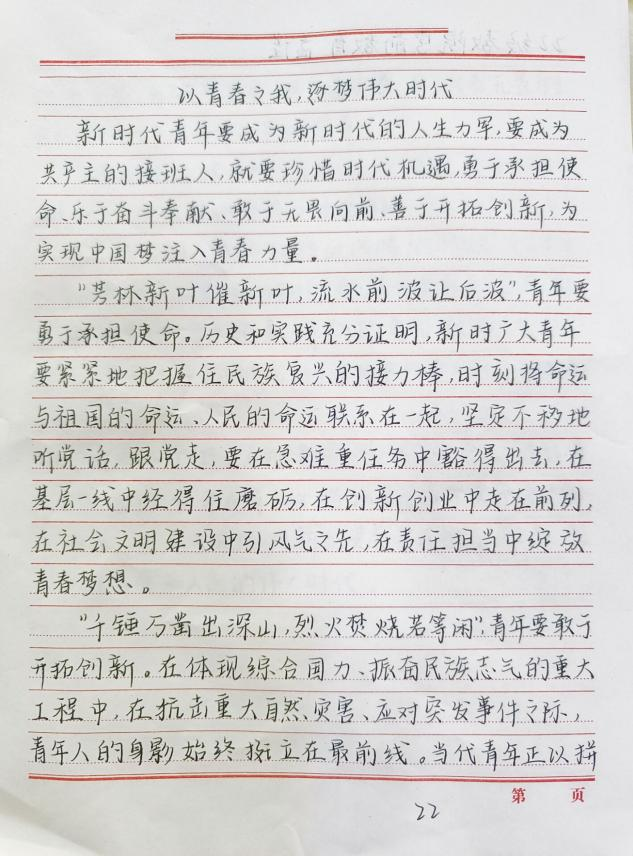 以青春之我,逐梦伟大时代
新时代青年要成为新时代的人生力军,要成为
共产主的接班人,就要珍惜时代机遇,勇于承担使
命、乐于奋斗奉献、敢于无畏向前、善于开拓创新,为
实现中国梦注入青春力量。
"芳林新叶催新叶,流水前波让后波",青年要
勇于承担使命。历史和实践充分证明,新时广大青年
要紧紧地把握住民族复兴的接力棒,时刻将命运
与祖国的命运、人民的命运联系在一起,坚定不移地
听党话,跟党走,要在急难重任务中豁得出去,在
基层一线中经得住磨砺,在创新创业中走在前列,
在社会文明建设中引风气之先,在责任担当中绽放
青春梦想。
"千锤万凿出深山,烈火焚烧若等闲",青年要敢于
开拓创新。在体现综合国力、振奋民族志气的重大
工程中,在抗击重大自然灾害、应对突发事件之际,
青年人的身影始终挺立在最前线。当代青年正以拼
第 页
22